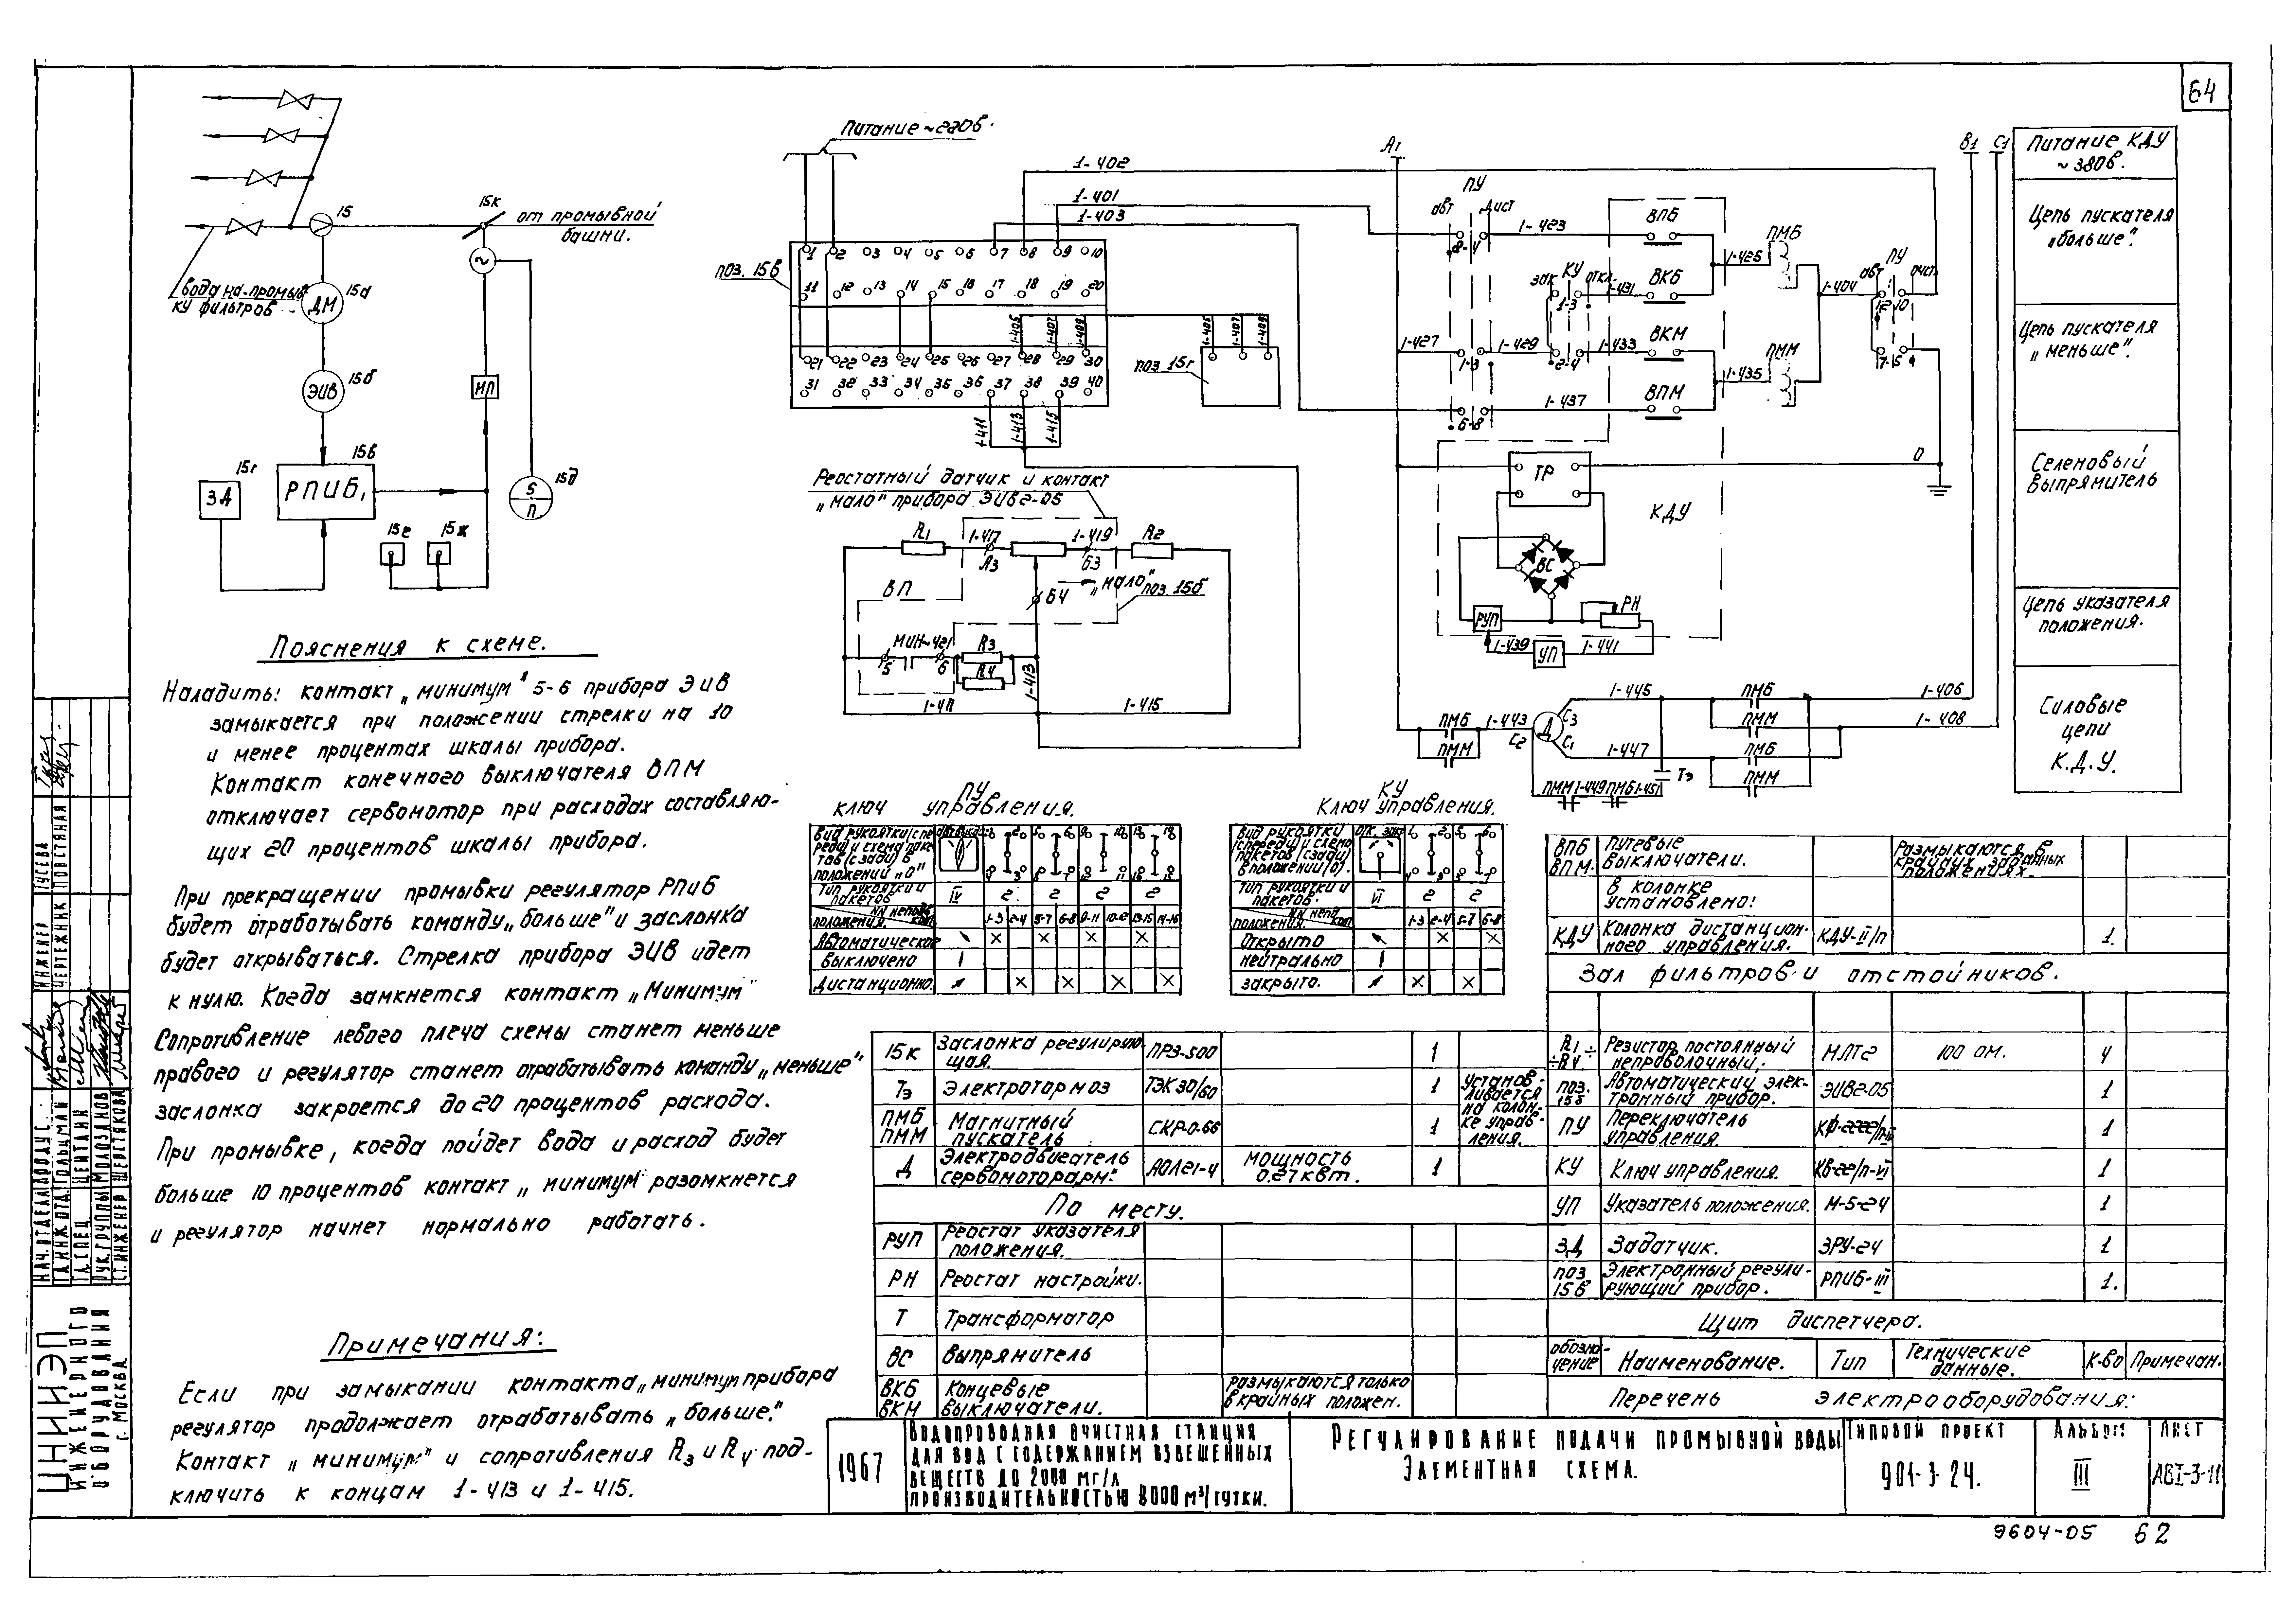 64
15
15к
от промывной
башни.
вода на промыв
ку фильтров
15а
ДМ
15б
ЭИВ
ИП
15в
РПИБ,
15г
ЗД
15е
15ж
S
п
15д
Пояснения к схеме.
Наладить: контакт „минимум" 5-6 прибора ЭИВ
замыкается при положении стрелки на 10
и менее процентах шкалы прибора.
Контакт конечного выключателя ВПМ
отключает сервомотор при расходах составляю-
щих 20 процентов шкалы прибора.
При прекращении промывки регулятор РПИБ
будет отрабатывать команду „больше" и заслонка
будет открываться. Стрелка прибора ЭИВ идет
к нулю. Когда замкнется контакт „Минимум"
Сопротивление левого плеча схемы станет меньше
правого и регулятор станет отрабатывать команду „меньше"
заслонка закроется до 20 процентов расхода.
При промывке, когда пойдет вода и расход будет
больше 10 процентов контакт „минимум" разомкнется
и регулятор начнет нормально работать.
Примечания:
Если при замыкании контакта „минимум прибора
регулятор продолжает отрабатывать „больше".
Контакт „минимум" и сопротивления R3 и R4 под-
ключить к концам 1-413 и 1-415.
Питание ~220в.
поз. 15в
1 2 3 4 5 6 7 8 9 10
11 12 13 14 15 16 17 18 19 20
1-405 1-407 1-409
21 22 23 24 25 26 27 28 29 30
31 32 33 34 35 36 37 38 39 40
1-411 1-413 1-415
1-402
1-401
1-403
1-405 1-407 1-409
поз. 15г
Реостатный датчик и контакт
„мало" прибора ЭИВ2-05
R1
1-417
А3
1-419
Б3
R2
„мало"
поз. 15б
Б4
ВП
МИН
1-421
5
6
R3
R4
1-413
1-411
1-415
А1
В1
С1
ПУ
авт
дист
8-4
1-423
ВПБ
1-425
ПМБ
зак
КУ
откл.
1-3
1-431
ВКБ
1-404
авт
ПУ
1-427
1-3
1-429
2-4
1-433
ВКМ
ПММ
6-8
1-437
ВПМ
1-435
ТР
КДУ
0
ВС
РУП
РН
1-439
УП
1-441
1-445
ПМБ
1-406
ПММ
1-408
ПМБ
ПММ
1-443
Д
С3
С2
С1
1-447
ПМБ
ПММ
Тэ
ПММ 1-449 ПМБ 1-451
Питание КДУ
~ 380в.
Цепь пускателя
„больше".
Цепь пускателя
„меньше".
Селеновый
выпрямитель
Цепь указателя
положения.
Силовые
цепи
К.Д.У.
ПУ
ключ управления.
Вид рукоятки (спе
реди) и схема паке
тов (сзади) в
положении „0"
Тип рукоятки и
пакетов
IV 2 2 2 2
положения.
1-3 2-4 5-7 6-8 9-11 10-12 13-15 14-16
Автоматическое × × × ×
выключено
Дистанционно. × × × ×
КУ
Ключ управления.
Вид рукоятки
(спереди) и схема
пакетов (сзади)
в положении (0).
Тип рукоятки и
пакетов.
VI 2 2
положения.
1-3 2-4 5-7 6-8
Открыто × ×
нейтрально
закрыто. × ×
ВПБ
ВПМ.
путевые
выключатели.
Размыкаются в
крайних заданных
положениях.
В колонке
установлено:
КДУ
Колонка дистанцион-
ного управления.
КДУ-II/п
1.
Зал фильтров и отстойников.
R1÷
÷R4
Резистор постоянный
непроволочный.
МЛТ2
100 ом.
4
поз.
15б
Автоматический элек-
тронный прибор.
ЭИВ2-05
1
ПУ
Переключатель
управления.
1
КУ
Ключ управления.
КВ-22/п-VI
1
УП
Указатель положения.
М-5-24
1
ЗД
Задатчик.
ЗРУ-24
1
поз
15в
Электронный регули-
рующий прибор.
РПИБ-III
1.
Щит диспетчера.
обозна-
чение
Наименование.
Тип
Технические
данные.
К-во
Примечан.
Перечень электрооборудования:
15к
Заслонка регулирую
щая.
ПРЗ-500
1
Тэ
Электротормоз
ТЭК 30/60
1
Установ-
ливается
на колон-
ке управ-
ления.
ПМБ
ПММ
Магнитный
пускатель
СКР-0-66
1
Д
Электродвигатель
сервомотора рм.
АОЛ21-4
мощность
0.27 квт.
1
По месту.
РУП
Реостат указателя
положения.
РН
Реостат настройки.
Т
Трансформатор
ВС
Выпрямитель
ВКБ
ВКМ
Концевые
выключатели.
размыкаются только
в крайних положен.
1967
Водопроводная очистная станция
для вод с содержанием взвешенных
веществ до 2000 мг/л
производительностью 8000 м³/сутки.
Регулирование подачи промывной воды
Элементная схема.
Типовой проект
901-3-24.
Альбом
III
Лист
АВI-3-11
9604-05 62
ЦНИИЭП
ИНЖЕНЕРНОГО
ОБОРУДОВАНИЯ
г. МОСКВА
НАЧ. ОТДЕЛА
ГЛ.ИНЖ.ОТД. ГОЛЬЦМАН
ГЛ. СПЕЦ. ЦЕНТАЛИН
РУК. ГРУППЫ
СТ. ИНЖЕНЕР ШЕРСТЯКОВА
ИНЖЕНЕР ГУСЕВА
ЧЕРТЕЖНИК ПОВСТЯНАЯ